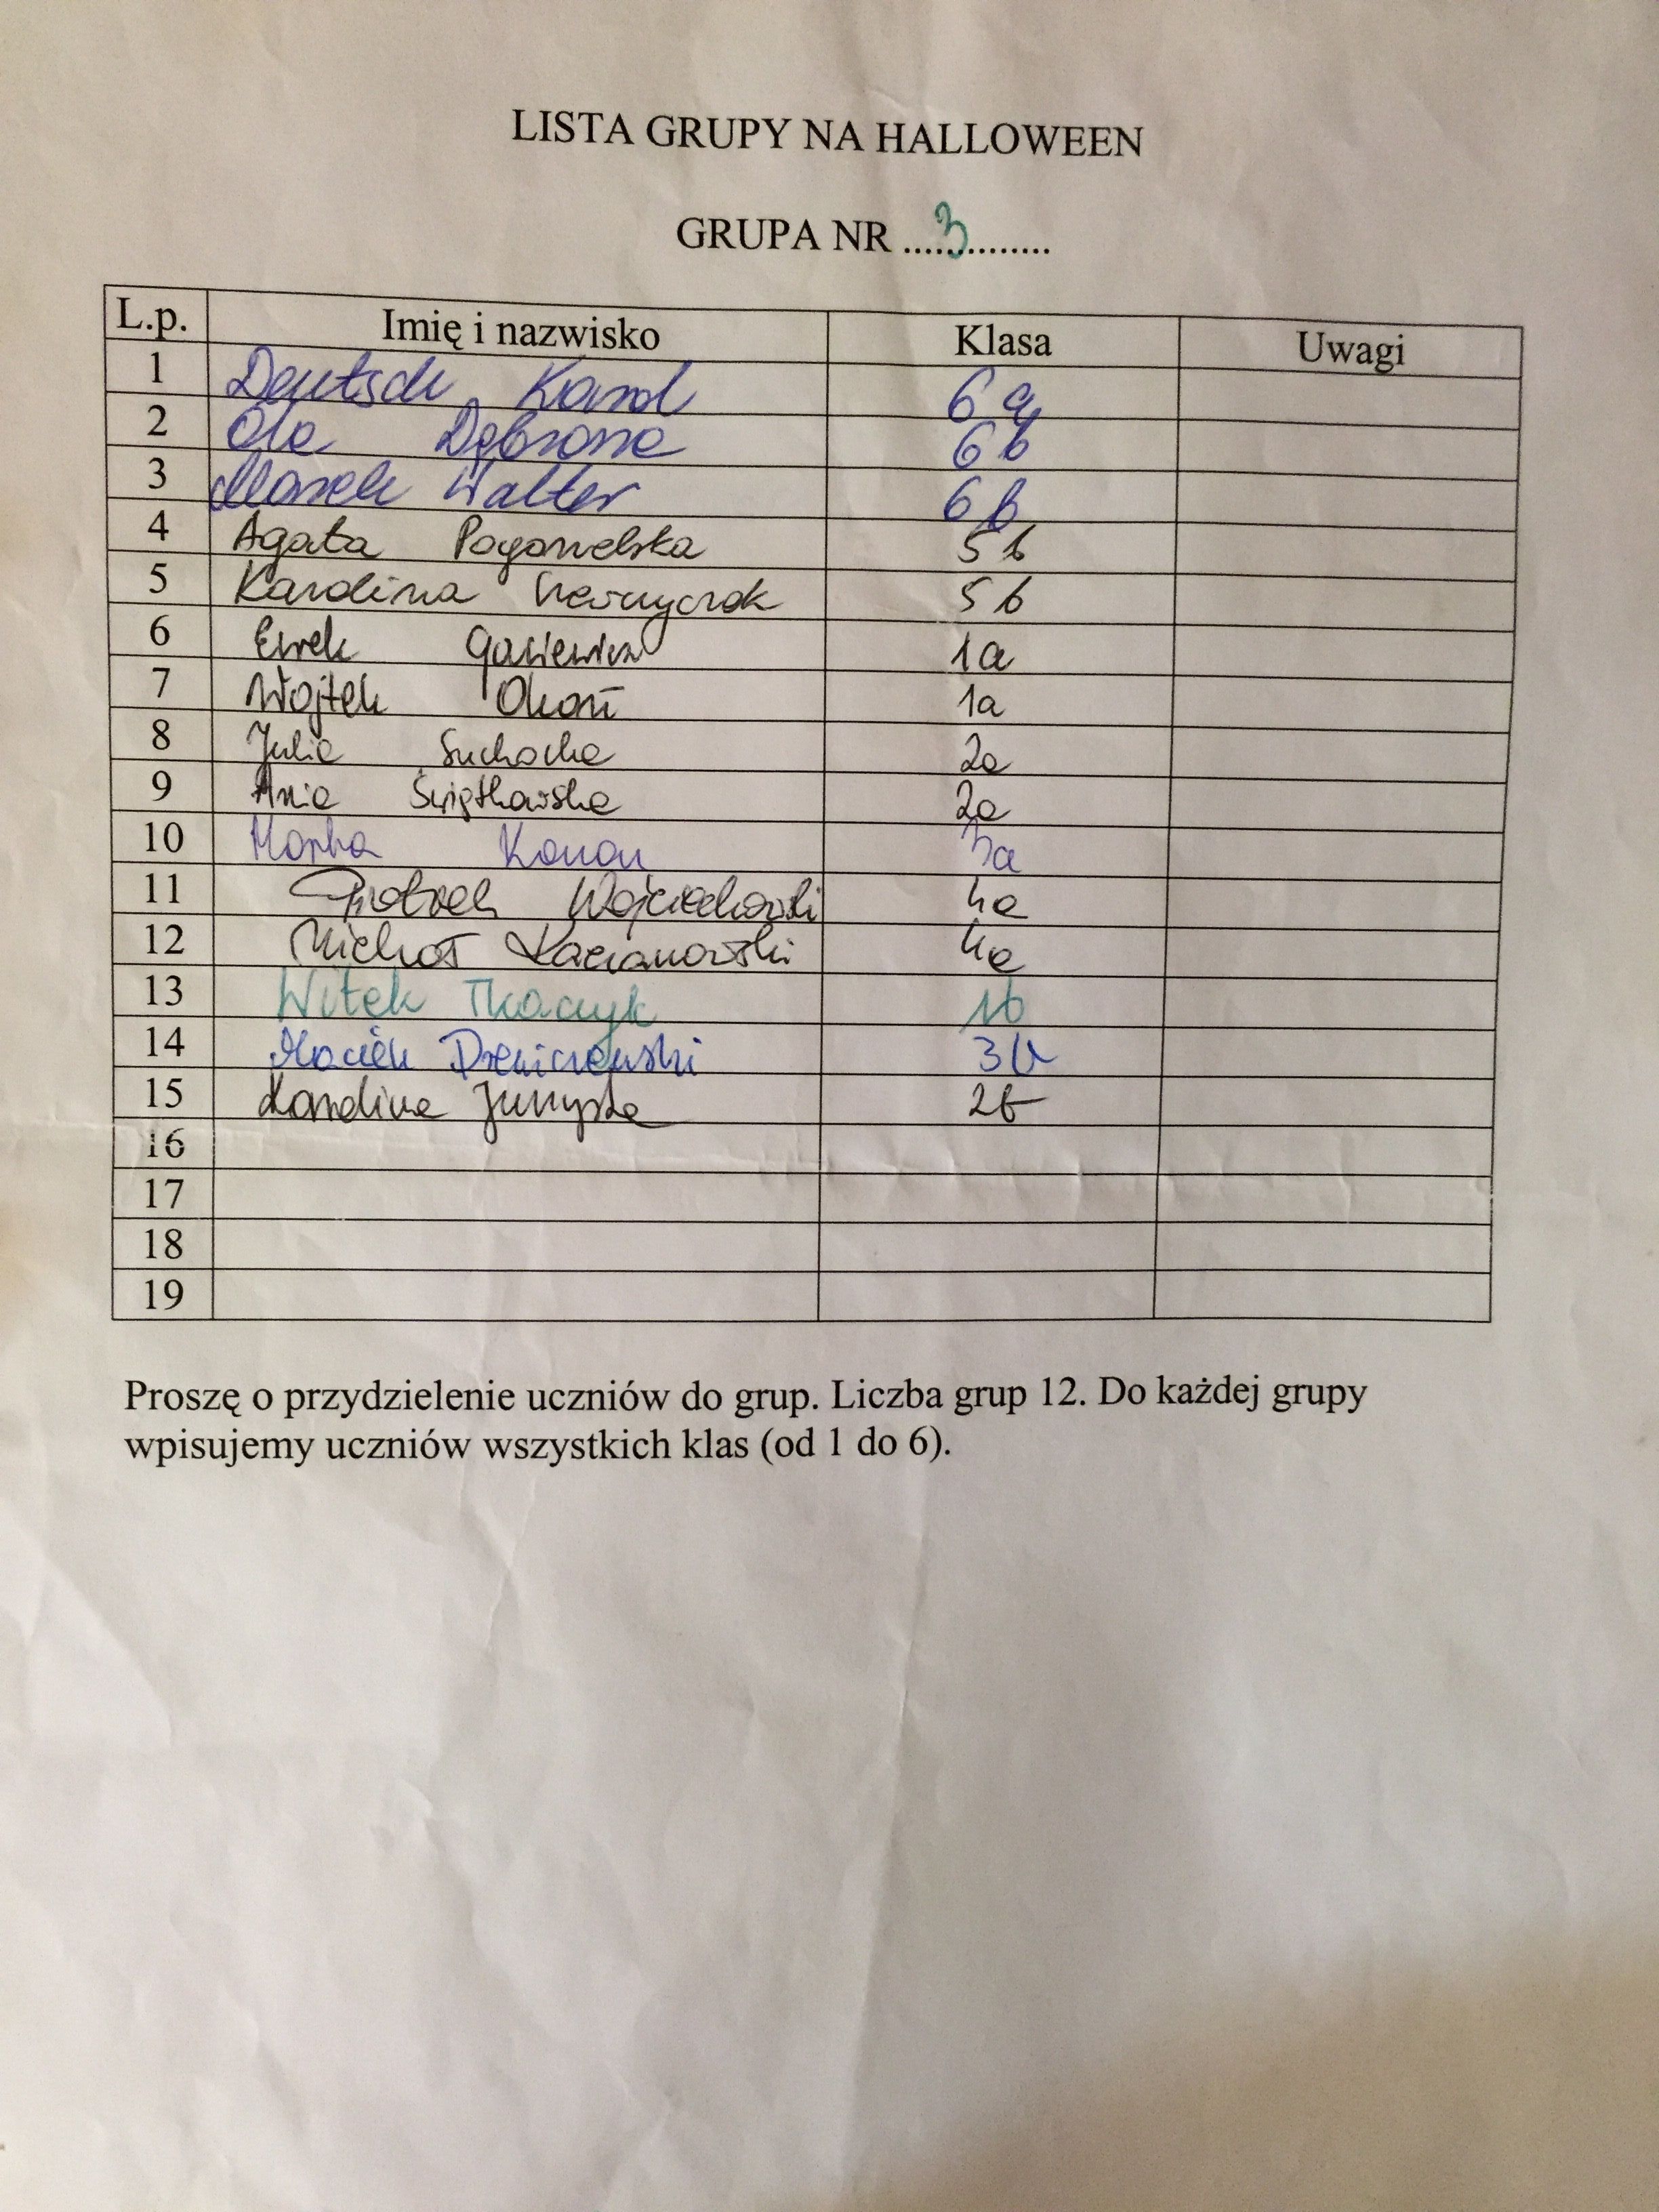 LISTA GRUPY NA HALLOWEEN
GRUPA NR ....3..............
L.p. Imię i nazwisko Klasa Uwagi
1 Deutsch Karol 6a
2 Ola 6b
3 Marek Walter 6b
4 Agata Pogorzelska 5b
5 Karolina 5b
6 1a
7 Wojtek Okoń 1a
8 Julia Suchocka 2a
9 Ania Świątkowska 2a
10 Marta Konon 3a
11 Piotrek Wojciechowski 4a
12 Michał Kacianowski 4a
13 Witek Tkaczyk 1b
14 Maciek 3b
15 Karolina 2b
16
17
18
19
Proszę o przydzielenie uczniów do grup. Liczba grup 12. Do każdej grupy
wpisujemy uczniów wszystkich klas (od 1 do 6).